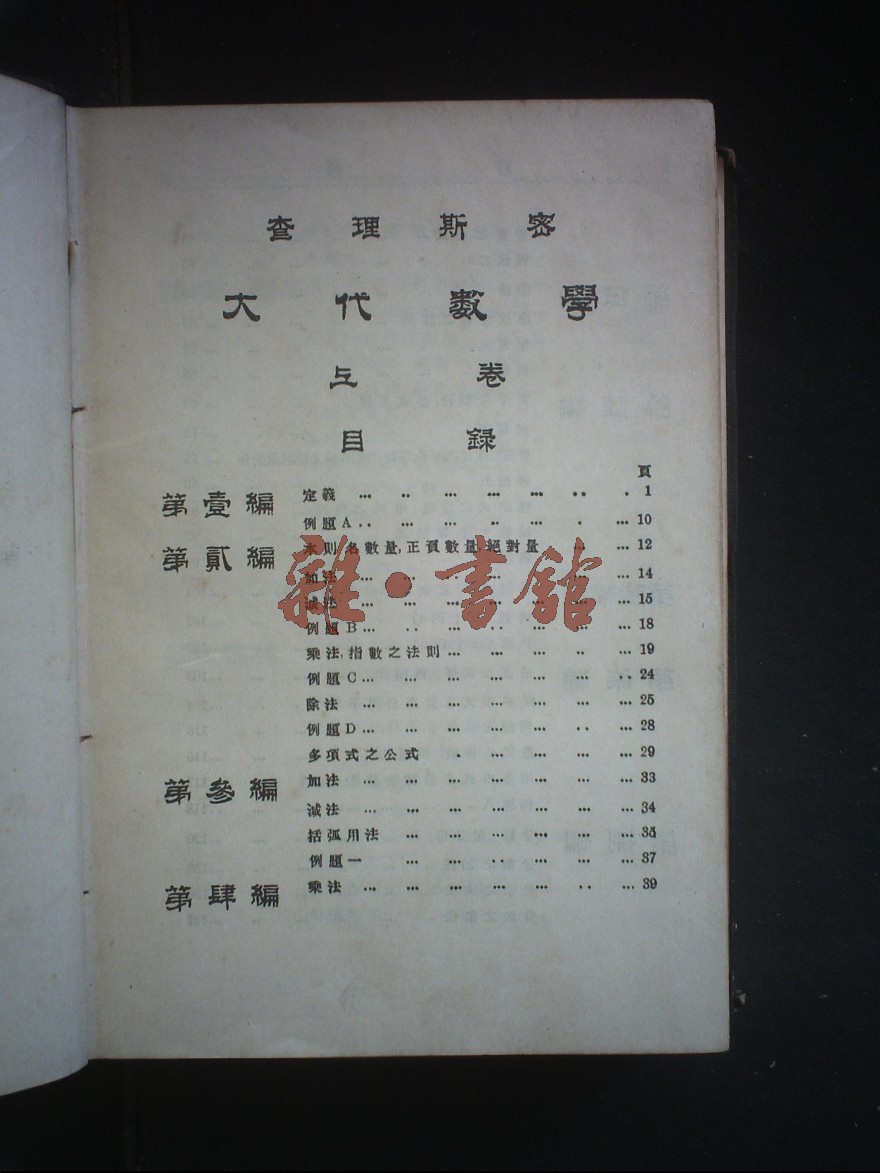 查理斯密
大代數學
上卷
目錄
頁
第壹編 定義 ... .. ... ... ... .. . 1
例題A .. ... ... .. ... . ... 10
第貳編 本則名數量,正負數量,絕對量 ... ... 12
加法 ... ... . .. ... ... ... 14
減法 ... ... ... ... ... ... ... 15
例題B ... .. ... .. ... ... ... 18
乘法,指數之法則 ... ... ... .. ... 19
例題C ... ... ... ... ... ... .. 24
除法 ... ... ... ... ... ... ... 25
例題D ... ... ... ... ... .. ... 28
多項式之公式 . ... ... ... ... 29
第參編 加法 ... ... ... ... ... ... ... 33
減法 ... ... ... ... ... ... ... 34
括弧用法 ... ... ... ... ... ... 35
例題一 ... ... .. ... ... ... 37
第肆編 乘法 ... ... ... ... ... .. ... 39
雜·書館